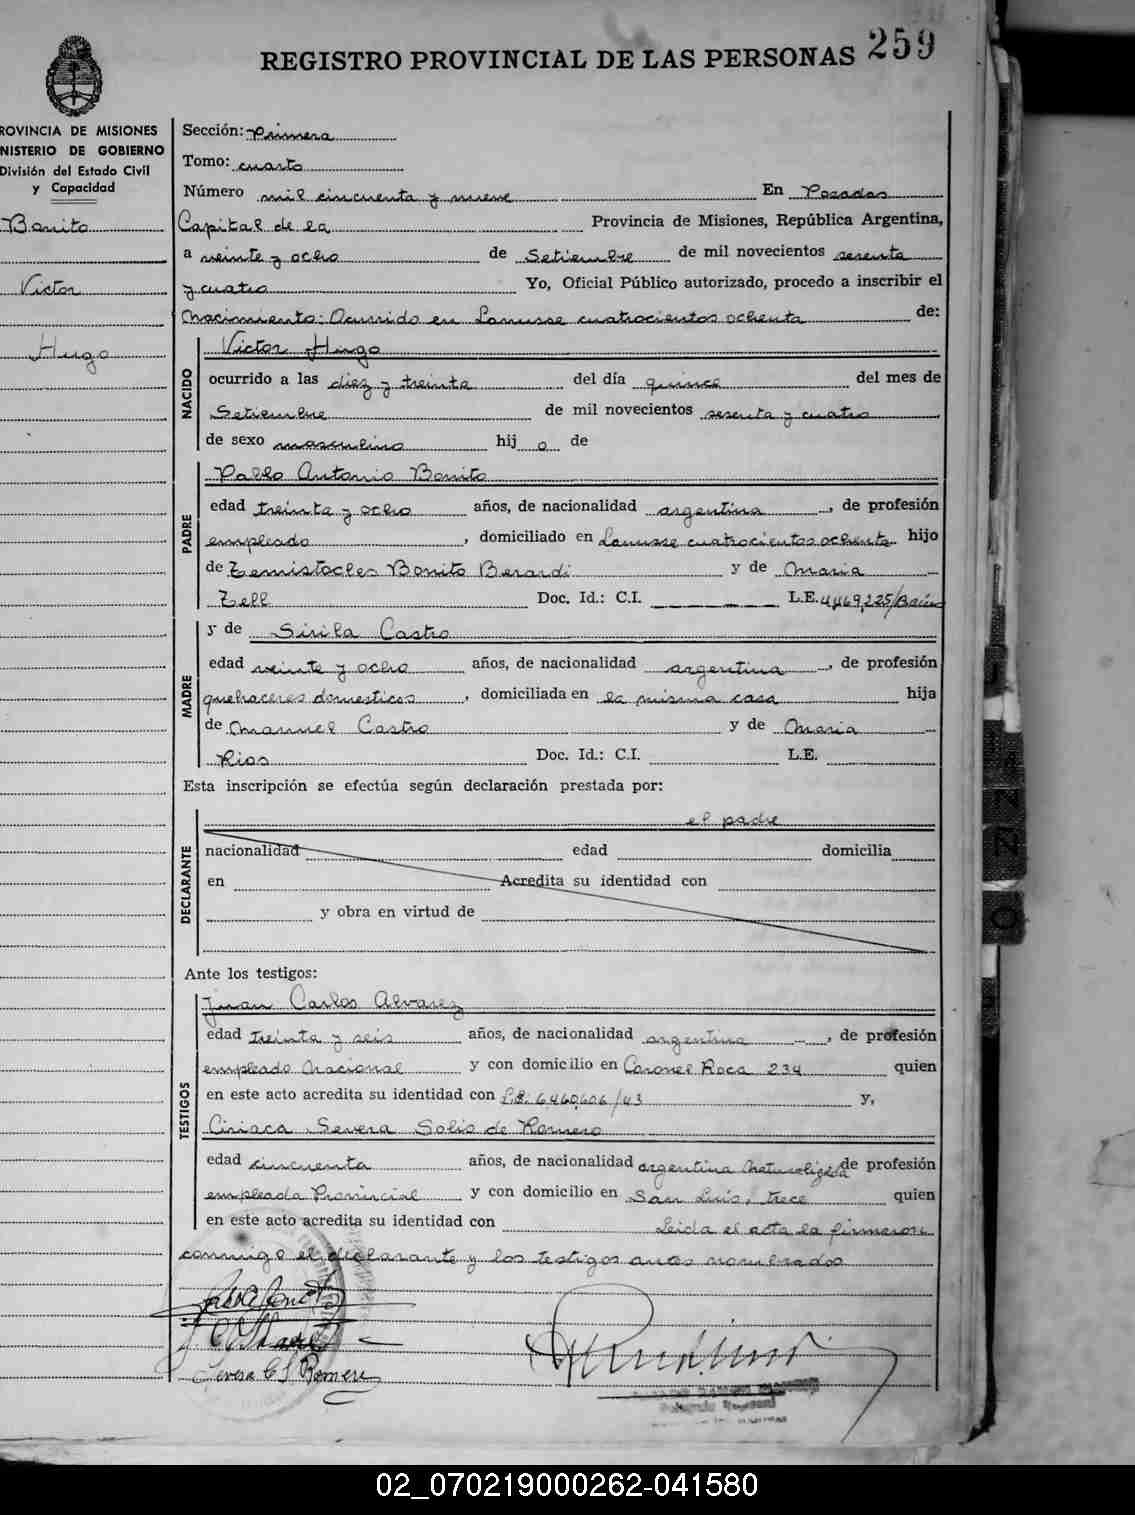 REGISTRO PROVINCIAL DE LAS PERSONAS 259
ROVINCIA DE MISIONES
NISTERIO DE GOBIERNO
División del Estado Civil
y Capacidad
Bonito
Victor
Hugo
Sección: Primera
Tomo: cuarto
Número mil cincuenta y nueve En Posadas
Capital de la Provincia de Misiones, República Argentina,
a veinte y ocho de Setiembre de mil novecientos sesenta
y cuatro Yo, Oficial Público autorizado, procedo a inscribir el
Nacimiento: Ocurrido en Lanusse cuatrocientos ochenta de:
NACIDO
Victor Hugo
ocurrido a las diez y treinta del día quince del mes de
Setiembre de mil novecientos sesenta y cuatro
de sexo masculino hij o de
PADRE
Pablo Antonio Bonito
edad treinta y ocho años, de nacionalidad argentina, de profesión
empleado, domiciliado en Lanusse cuatrocientos ochenta hijo
de Temistocles Bonito Berardi y de Maria
Zell Doc. Id.: C.I. L.E. 4,469,225/
y de Sirila Castro
MADRE
edad veinte y ocho años, de nacionalidad argentina, de profesión
quehaceres domesticos, domiciliada en la misma casa hija
de Manuel Castro y de Maria
Rios Doc. Id.: C.I. L.E.
Esta inscripción se efectúa según declaración prestada por:
DECLARANTE
el padre
nacionalidad edad domicilia
en Acredita su identidad con
y obra en virtud de
Ante los testigos:
TESTIGOS
Juan Carlos Alvarez
edad treinta y seis años, de nacionalidad argentina, de profesión
empleado Nacional y con domicilio en Coronel Roca 234 quien
en este acto acredita su identidad con L.E. 6,460,606/43 y,
Ciriaca Severa Solis de Romero
edad cincuenta años, de nacionalidad argentina Naturalizada de profesión
empleada Provincial y con domicilio en San Luis, trece quien
en este acto acredita su identidad con Leida el acta la firmaron
conmigo el declarante y los testigos antes nombrados
02_070219000262-041580